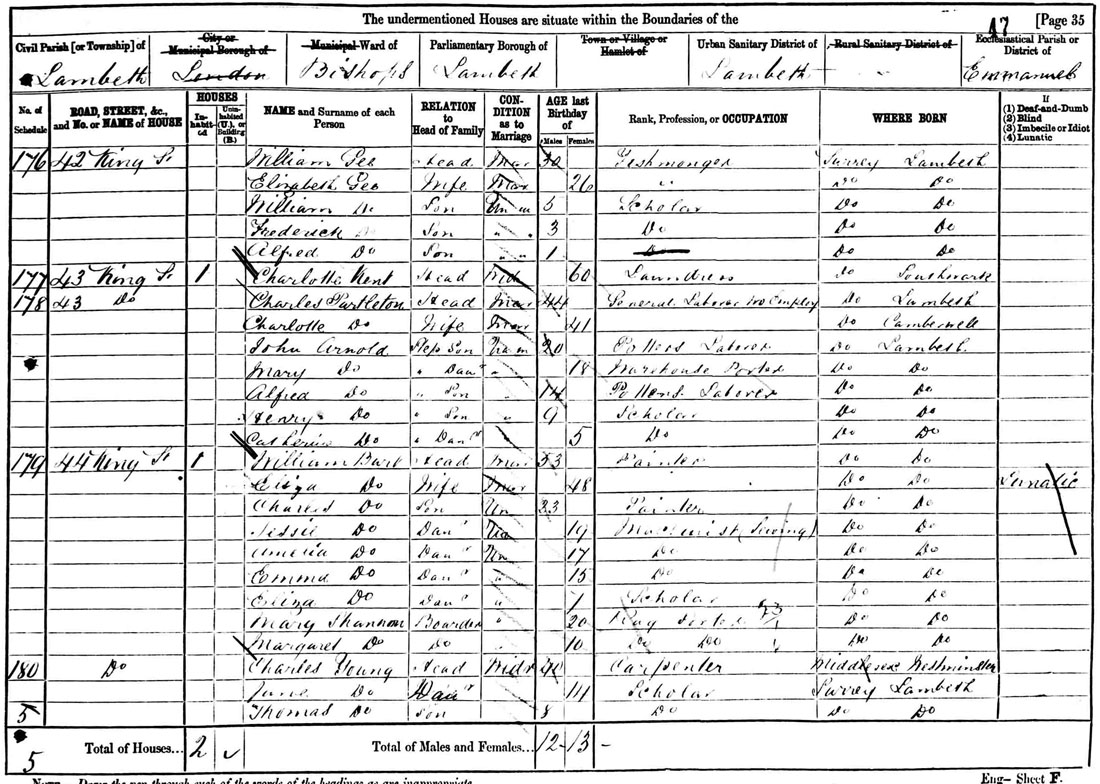 The undermentioned Houses are situate within the Boundaries of the
47 [Page 35
Civil Parish [or Township] of City or Municipal Borough of Municipal Ward of Parliamentary Borough of Town or Village or Hamlet of Urban Sanitary District of Rural Sanitary District of Ecclesiastical Parish or District of
Lambeth London Bishops Lambeth Lambeth Emmanuel
No. of Schedule ROAD, STREET, &c., and No. or NAME of HOUSE HOUSES Inhabited Uninhabited (U.), or Building (B.) NAME and Surname of each Person RELATION to Head of Family CONDITION as to Marriage AGE last Birthday of Males Females Rank, Profession, or OCCUPATION WHERE BORN If (1) Deaf-and-Dumb (2) Blind (3) Imbecile or Idiot (4) Lunatic
176 42 King St William Gee Head Mar 30 Fishmonger Surrey Lambeth
Elizabeth Gee Wife Mar 26 " Do Do
William Do Son Unm 5 Scholar Do Do
Frederick Do Son " 3 Do Do Do
Alfred Do Son " 1 Do Do Do
177 43 King St 1 Charlotte Kent Head Wid 60 Laundress Do Southwark
178 43 Do Charles Partleton Head Mar 44 General Laborer No Employ Do Lambeth
Charlotte Do Wife Mar 41 Do Camberwell
John Arnold Step Son Unm 20 Potters Laborer Do Lambeth
Mary Do " Daur " 18 Warehouse Porter Do Do
Alfred Do " Son " 14 Potters Laborer Do Do
Henry Do " Son " 9 Scholar Do Do
Catherine Do " Daur " 5 Do Do Do
179 44 King St 1 William Burt Head Mar 53 Painter Do Do
Eliza Do Wife Mar 48 Do Do Lunatic
Charles Do Son Un 23 Painter Do Do
Jessie Do Daur Un 19 Machinist (Sewing) Do Do
Amelia Do Daur Un 17 Do Do Do
Emma Do Daur " 15 Do Do Do
Eliza Do Daur " Scholar Do Do
Mary Shannon Boarder " 20 Rag Sorter Do Do
Margaret Do Do 10 Do Do Do
180 Do Charles Young Head Widr Carpenter Middlesex Westminster
Jane Do Daur 14 Scholar Surrey Lambeth
5 Thomas Do Son 8 Do Do Do
5 Total of Houses... 2 Total of Males and Females... 12 - 13 -
NOTE.—Draw the pen through such of the words of the headings as are inappropriate.
Eng— Sheet F.